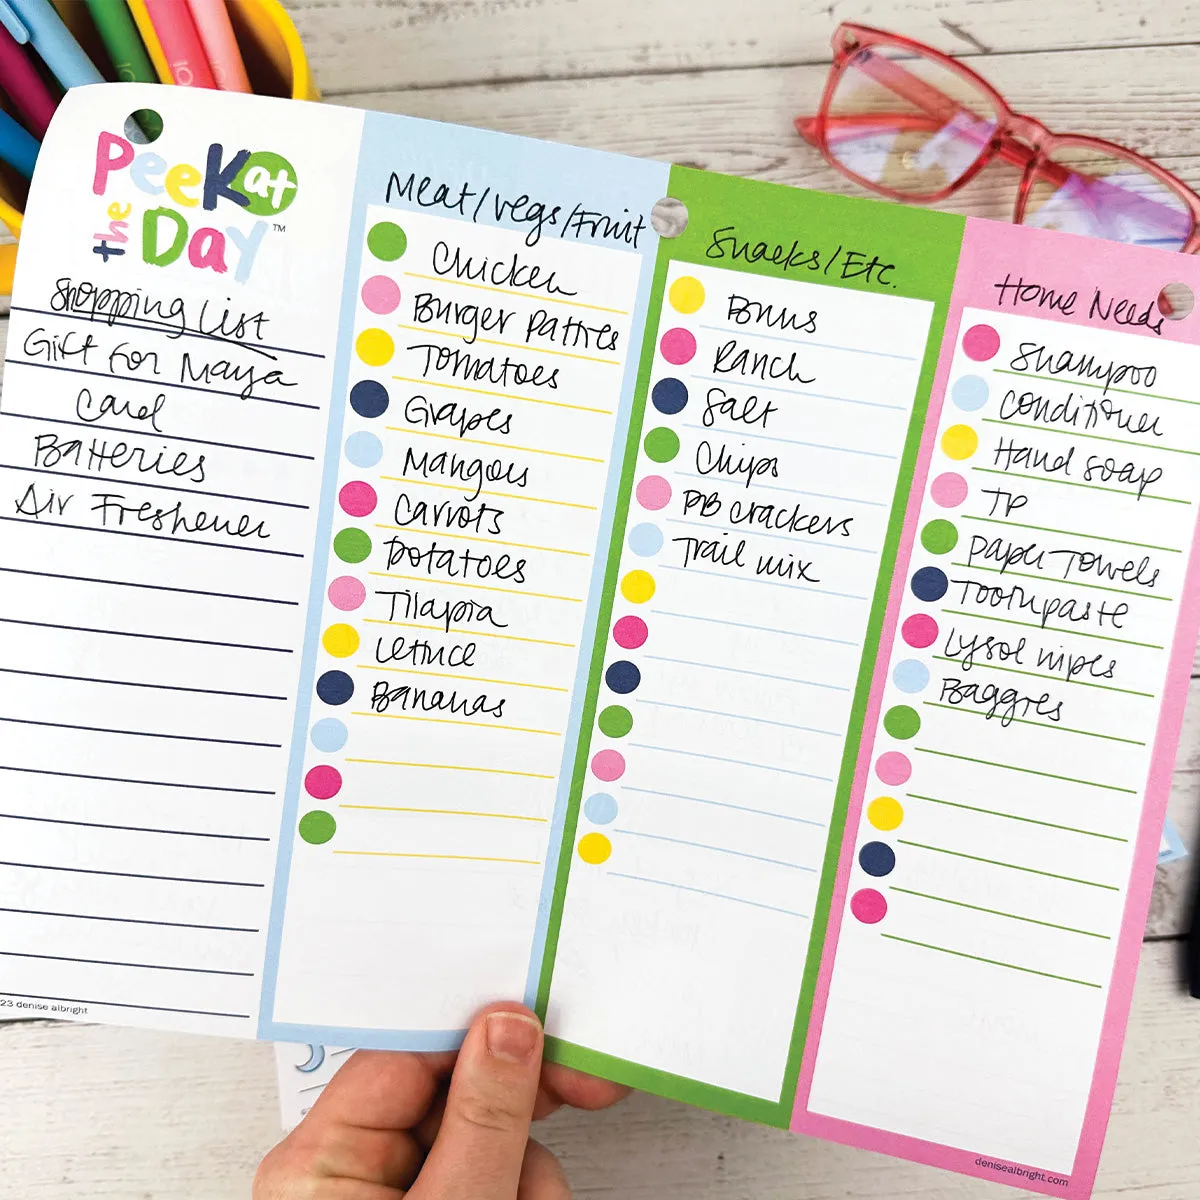 Peek at
the Day™
Shopping List
Gift for Maya
Card
Batteries
Air Freshener
23 denise albright
Meat/Vegs/Fruit
Chicken
Burger Patties
Tomatoes
Grapes
Mangos
Carrots
Potatoes
Tilapia
Lettuce
Bananas
Snacks/Etc.
Buns
Ranch
Salt
Chips
PB crackers
Trail mix
Home Needs
Shampoo
Conditioner
Hand soap
TP
Paper Towels
Toothpaste
Lysol wipes
Baggies
denisealbright.com